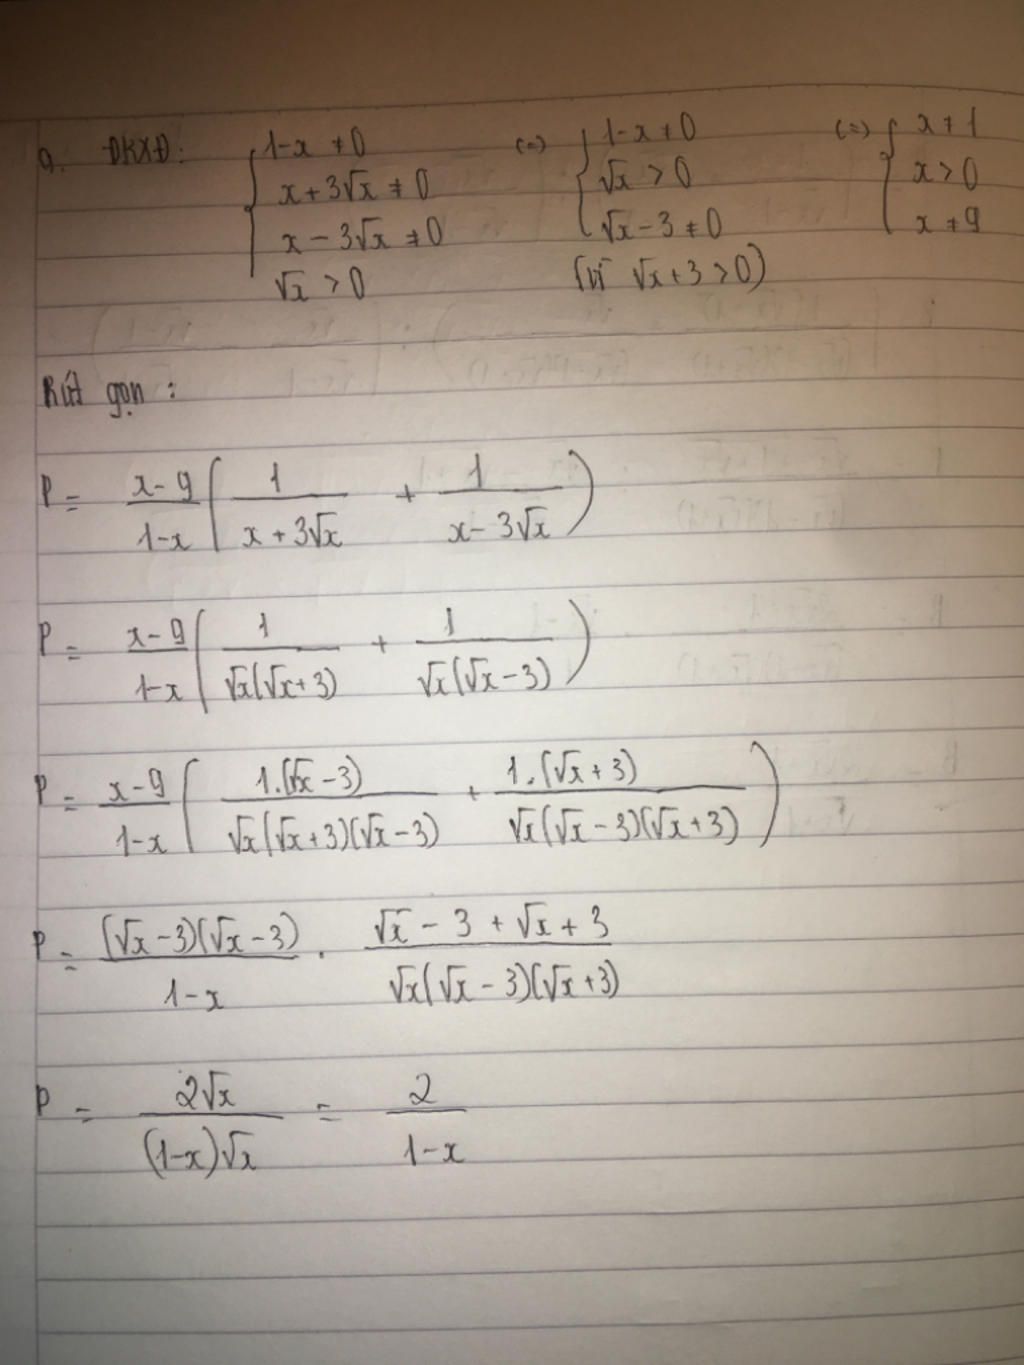 a. ĐKXĐ: { 1-x ≠ 0 (=) { 1-x ≠ 0 (=) { x ≠ 1
x + 3√x ≠ 0 √x > 0 x > 0
x - 3√x ≠ 0 √x - 3 ≠ 0 x ≠ 9
√x > 0 (vì √x + 3 > 0)
Rút gọn :
P = (x-9)/(1-x) ( 1/(x + 3√x) + 1/(x - 3√x) )
P = (x-9)/(1-x) ( 1/(√x(√x+3)) + 1/(√x(√x-3)) )
P = (x-9)/(1-x) ( 1.(√x-3)/(√x(√x+3)(√x-3)) + 1.(√x+3)/(√x(√x-3)(√x+3)) )
P = (√x-3)(√x-3)/(1-x) . (√x - 3 + √x + 3)/(√x(√x-3)(√x+3))
P = 2√x/((1-x)√x) = 2/(1-x)